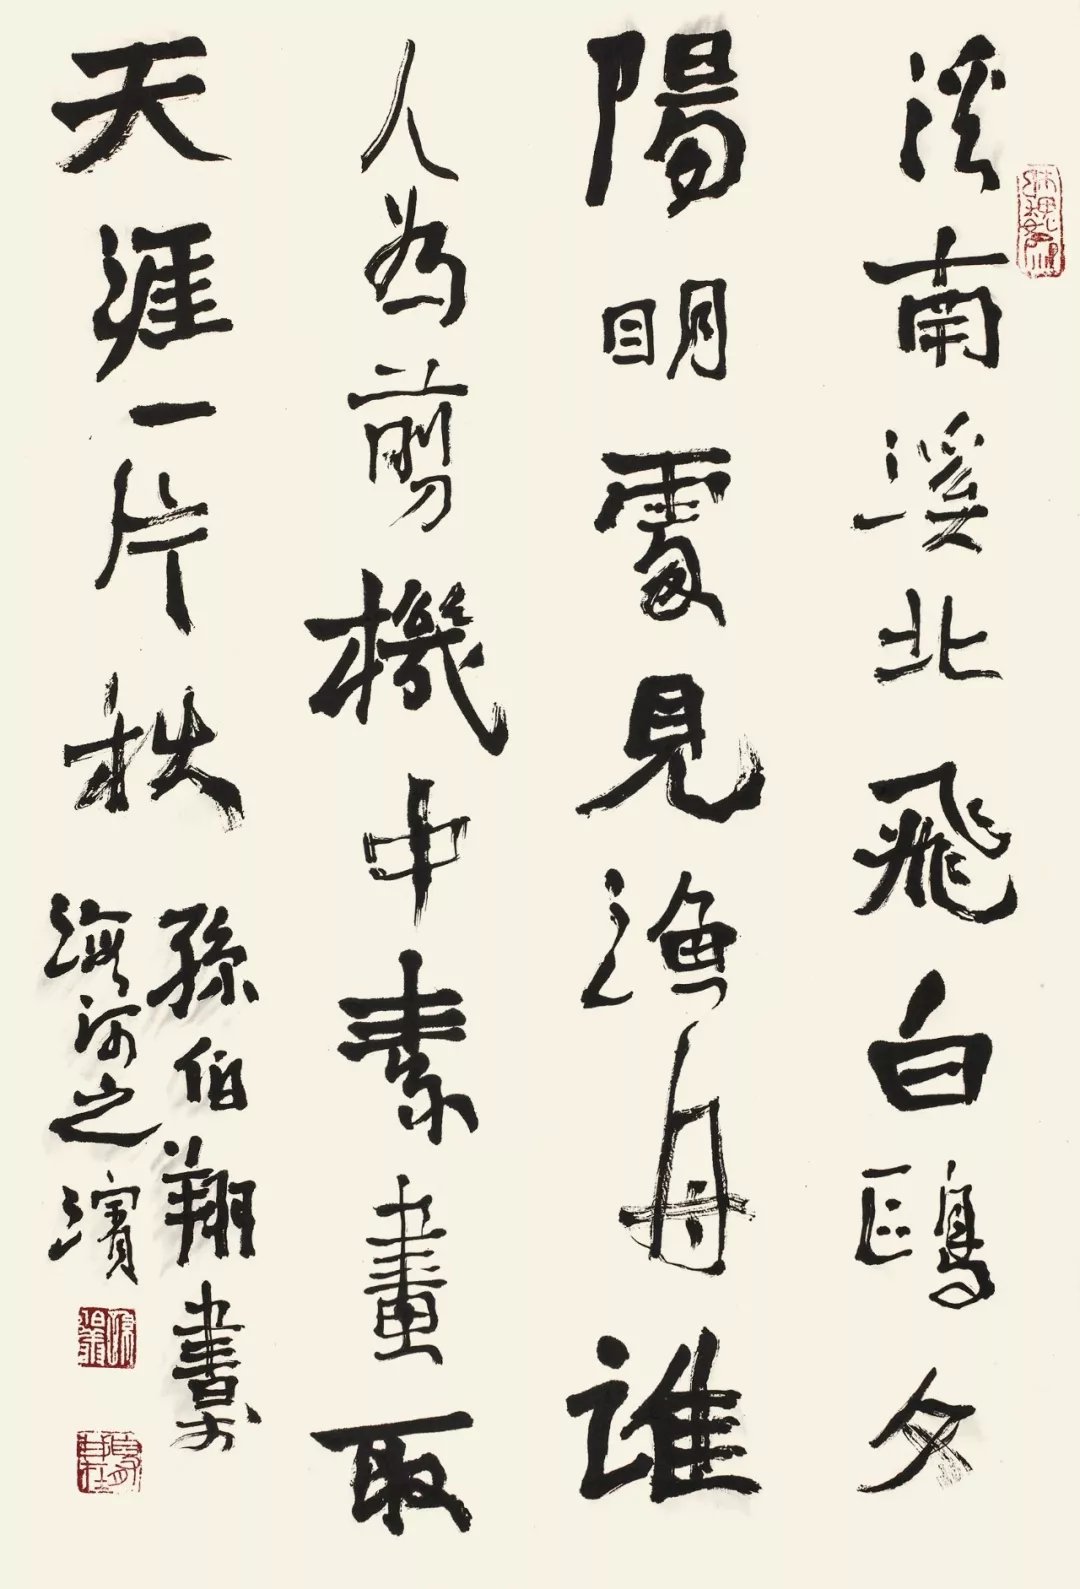 溪南溪北飛白鷗夕
陽明處見漁舟誰
人為剪機中素畫取
天涯一片秋
孫伯翔書於
海河之濱